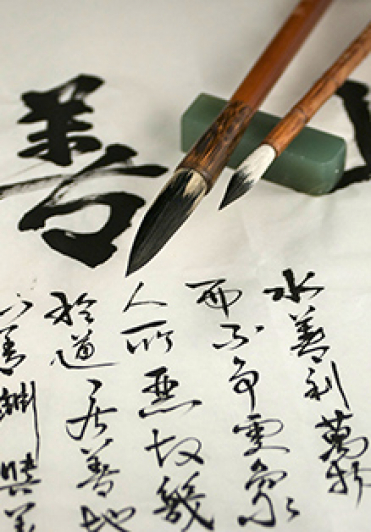 善
水善利萬物
而不爭處衆
人所惡故幾
於道居善地
心善淵